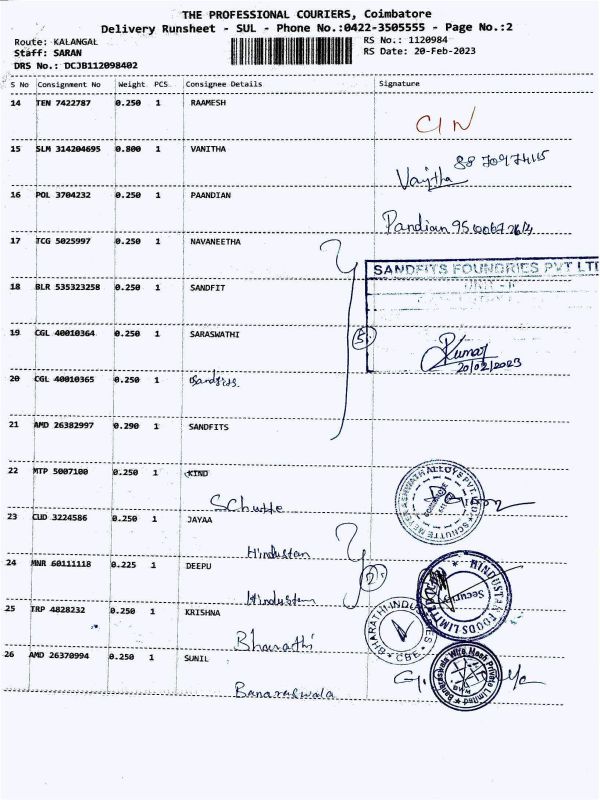 THE PROFESSIONAL COURIERS, Coimbatore
Delivery Runsheet - SUL - Phone No.:0422-3505555 - Page No.:2
Route: KALANGAL
RS No.: 1120984
Staff: SARAN
RS Date: 20-Feb-2023
DRS No.: DCJB112098402
S No Consignment No Weight PCS Consignee Details Signature
14 TEN 7422787 0.250 1 RAAMESH
15 SLM 314204695 0.800 1 VANITHA
16 POL 3704232 0.250 1 PAANDIAN
Pandian
17 TCG 5025997 0.250 1 NAVANEETHA
SANDFITS FOUNDRIES PVT LTD
18 BLR 535323258 0.250 1 SANDFIT
19 CGL 40010364 0.250 1 SARASWATHI
5
Kumar
20/02/2023
20 CGL 40010365 0.250 1 Sandfits
21 AMD 26382997 0.290 1 SANDFITS
22 MTP 5007100 0.250 1 KIND
Schutte
23 CUD 3224586 0.250 1 JAYAA
Hindustan
24 MNR 60111118 0.225 1 DEEPU
2
HINDUSTAN FOODS LIMITED
Security
Hindustan
25 TRP 4828232 0.250 1 KRISHNA
BHARATHI INDUSTRIES
CBE
Bharathi
26 AMD 26370994 0.250 1 SUNIL
Banaraswala Wire Mesh Private Limited
Banaraswala